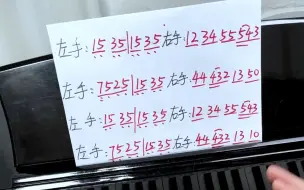 左手:15 35|15 35 右手:12 34 55 543
左手:7525|1535 右手:44 432 13 50
左手:15 35|15 35 右手:12 34 55 543
左手:7525|1535 右手:44 432 13 10